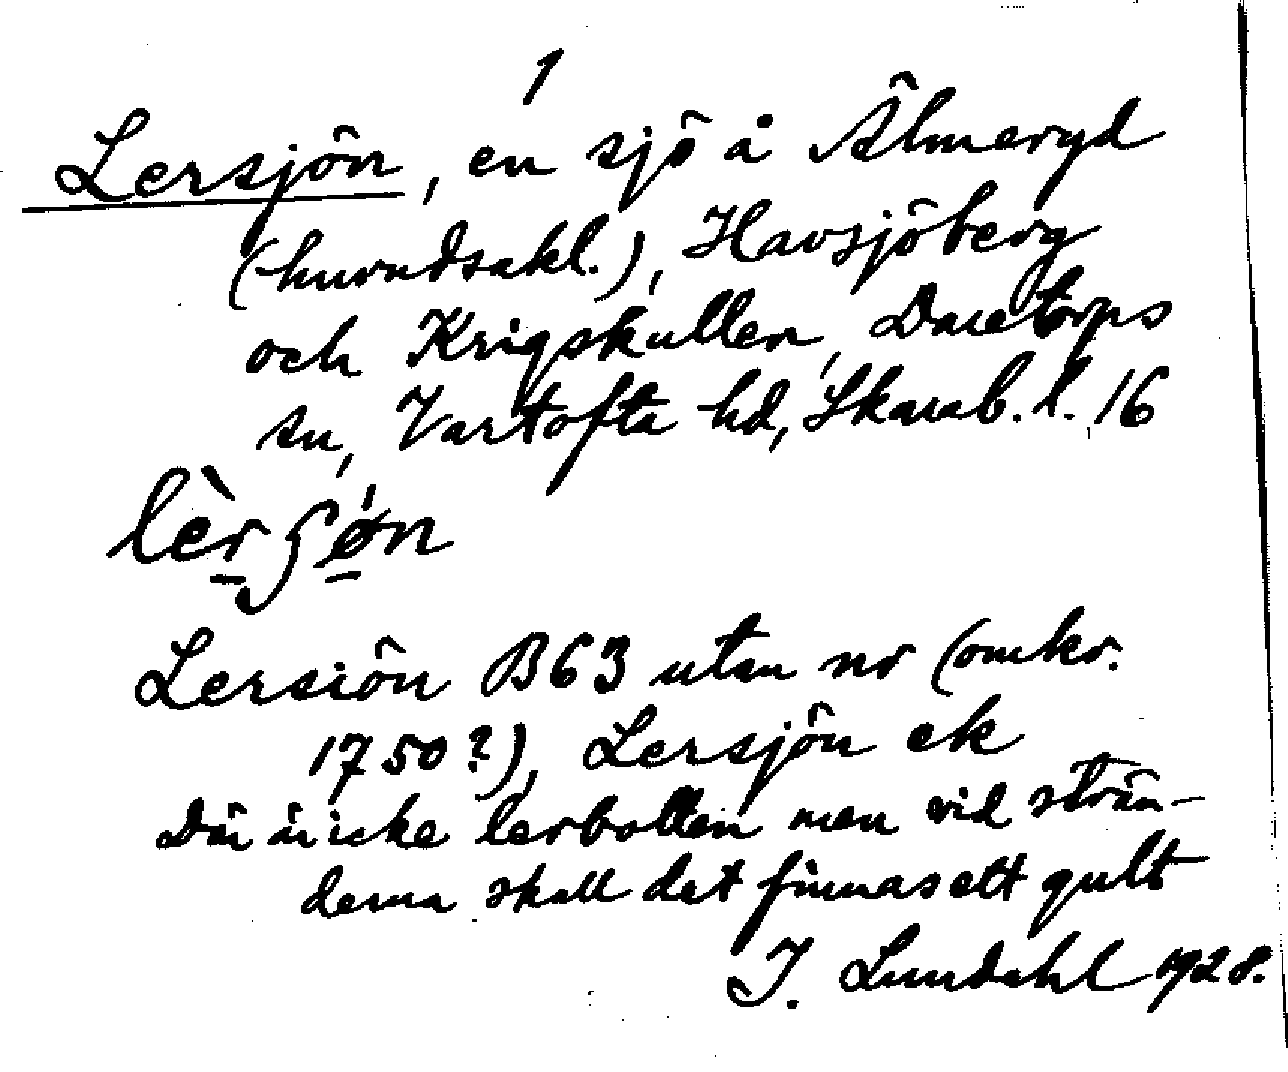 1
Lersjön, en sjö å Älmeryd
(huvudsakl.), Havsjöberg
och Krigskullen, Daretorps
sn, Vartofta hd, Skarab. l. 16
lèrʃø̀n
Lersiön B63 utan nr (omkr.
1750?), Lersjön ek
Där är icke lerbotten men vid strän-
derna skall det finnas ett gult
I. Lundahl 1928.